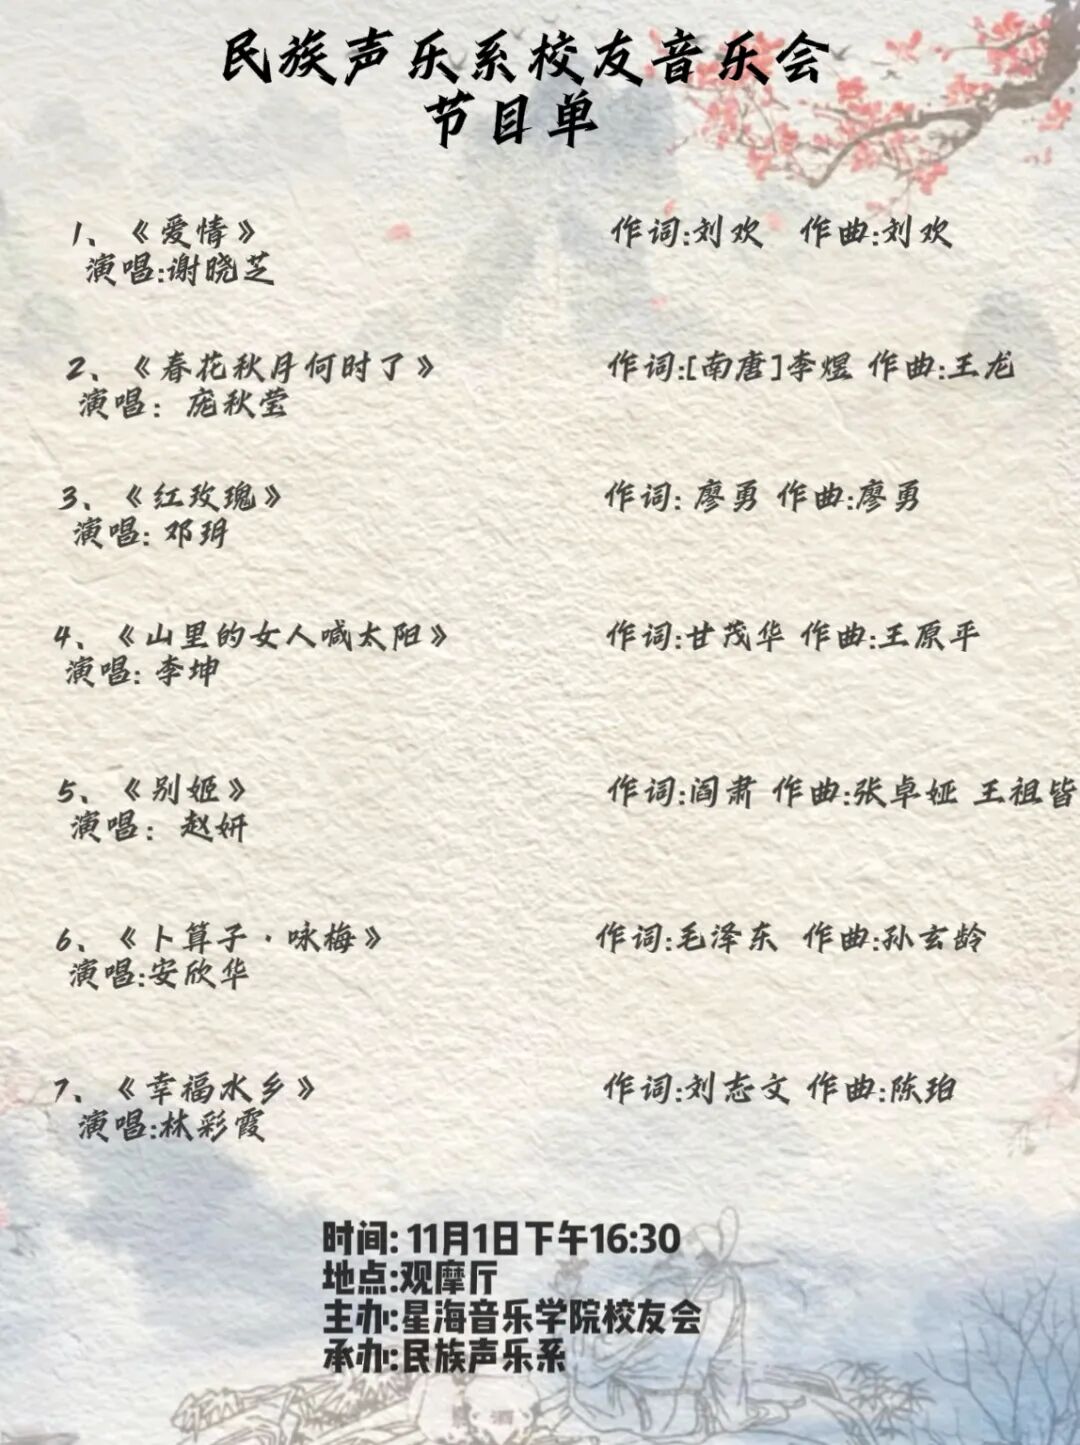 民族声乐系校友音乐会
节目单
1、《爱情》 作词:刘欢 作曲:刘欢
演唱:谢晓芝
2、《春花秋月何时了》 作词:[南唐]李煜 作曲:王龙
演唱：庞秋莹
3、《红玫瑰》 作词: 廖勇 作曲:廖勇
演唱: 邓玥
4、《山里的女人喊太阳》 作词:甘茂华 作曲:王原平
演唱: 李坤
5、《别姬》 作词:阎肃 作曲:张卓娅 王祖皆
演唱：赵妍
6、《卜算子·咏梅》 作词:毛泽东 作曲:孙玄龄
演唱:安欣华
7、《幸福水乡》 作词:刘志文 作曲:陈珀
演唱:林彩霞
时间: 11月1日下午16:30
地点:观摩厅
主办:星海音乐学院校友会
承办:民族声乐系